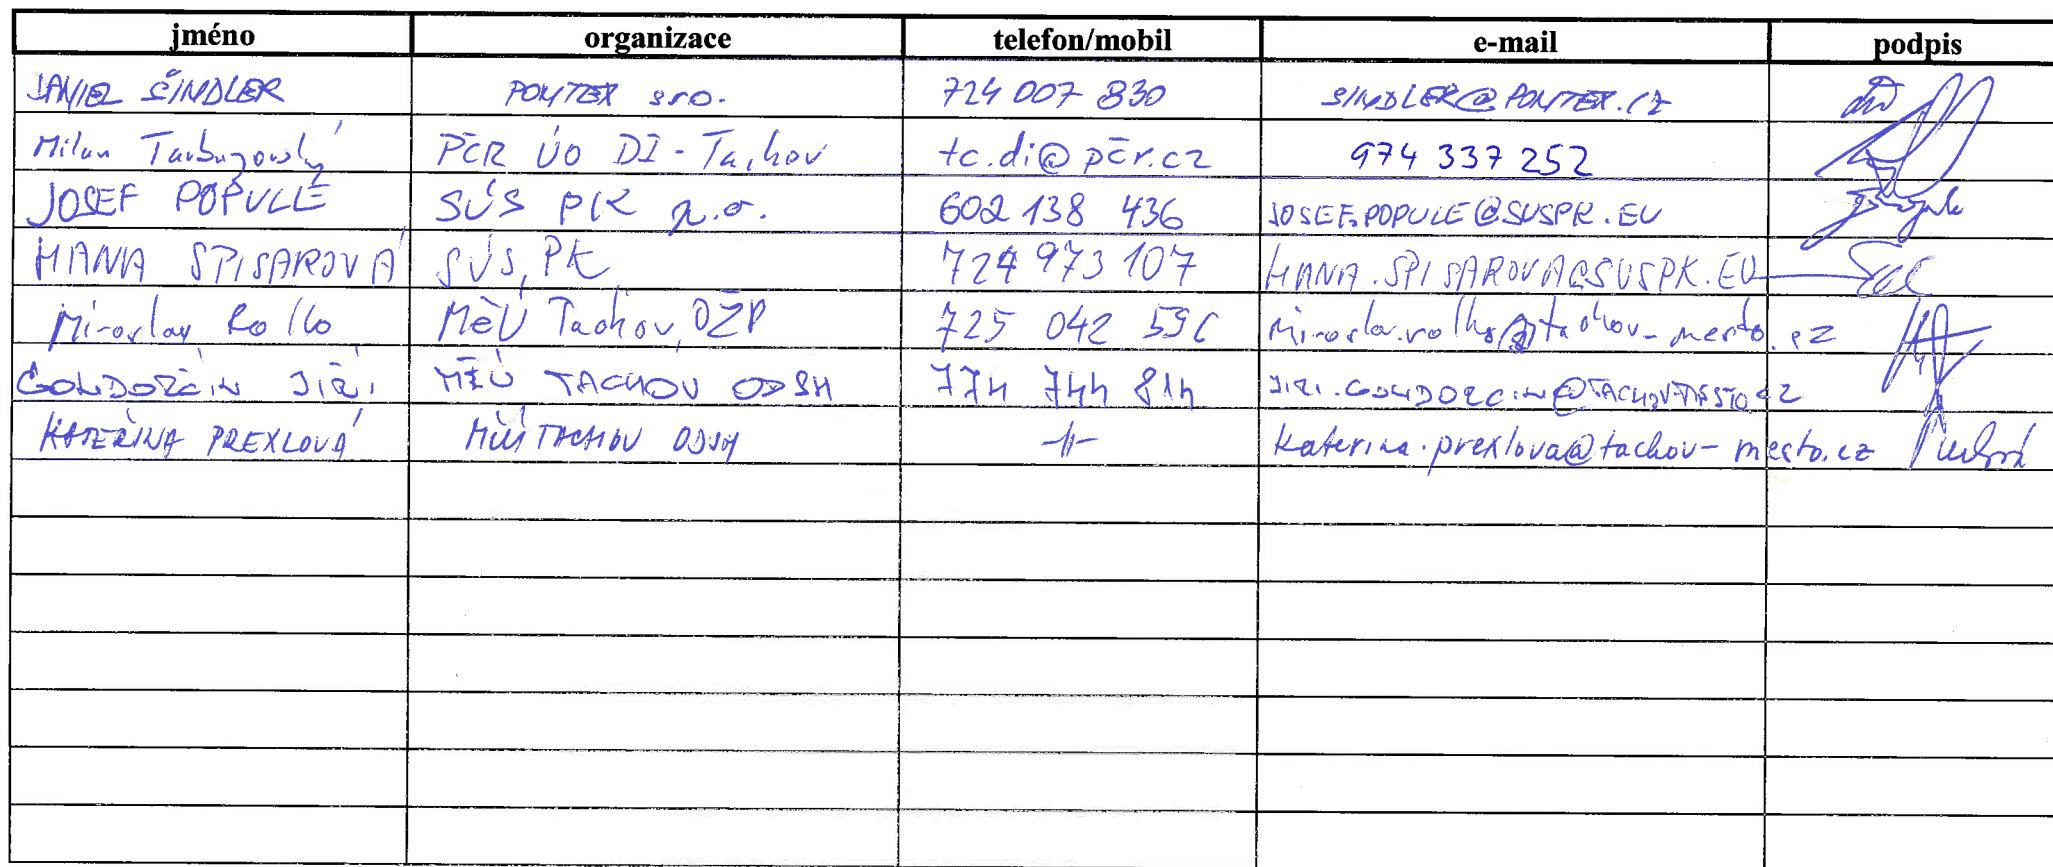 jméno organizace telefon/mobil e-mail podpis
DANIEL ŠINDLER PONTEX s.r.o. 724 007 830 SINDLER@PONTEX.CZ
Milan PČR ÚO DI - Tachov tc.di@pčr.cz 974 337 252
JOSEF POPULE SÚS PK p.o. 602 138 436 JOSEF.POPULE@SUSPK.EU
HANA SPISAROVÁ SÚS PK 724 973 107 HANA.SPISAROVA@SUSPK.EU
Miroslav Rolko MěÚ Tachov, OŽP 725 042 596
JIŘÍ MĚÚ TACHOV ODSH 774 744 814
KATEŘINA PREXLOVÁ MĚÚ TACHOV ODSH -11- katerina.prexlova@tachov-mesto.cz